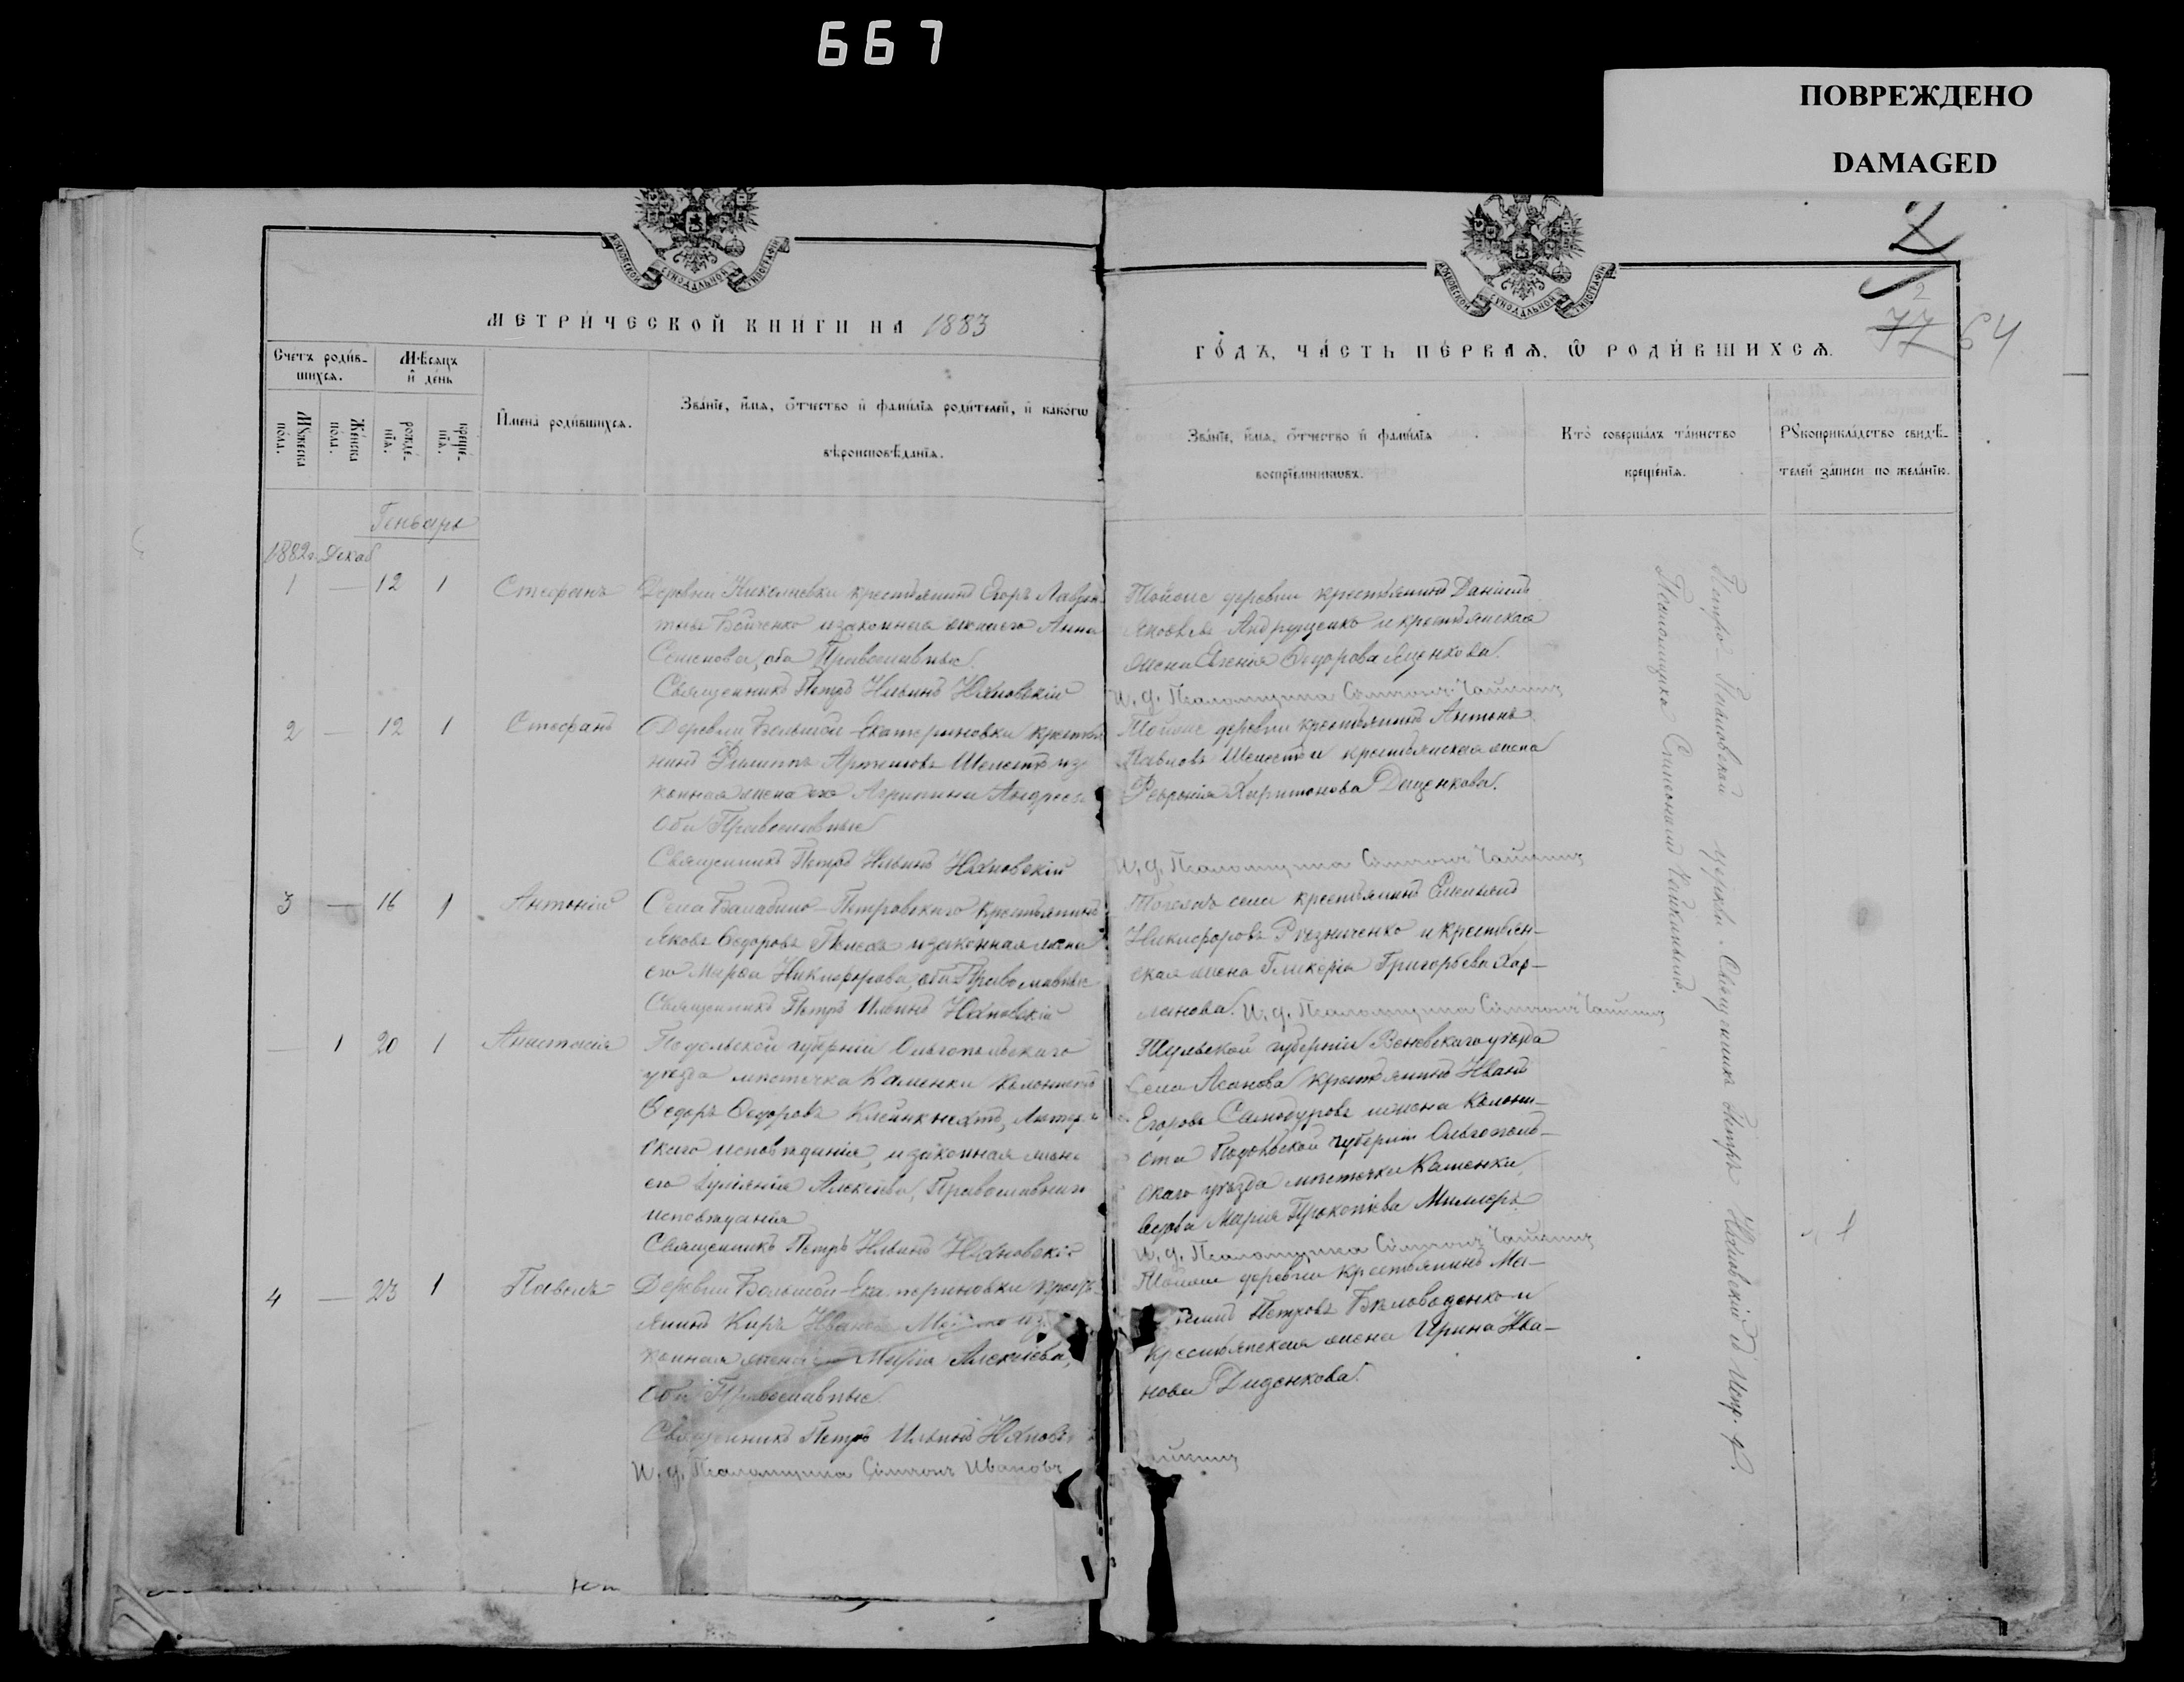 667
ПОВРЕЖДЕНО
DAMAGED
МОСКОВСКОЙ СѴНОДАЛЬНОЙ ТИПОГРАФІИ
МОСКОВСКОЙ СѴНОДАЛЬНОЙ ТИПОГРАФІИ
2
77 64
МЕТРИ́ЧЕСКОЙ КНИ́ГИ НА 1883
ГО́ДЪ, ЧА́СТЬ ПЕ́РВАѦ, Ѡ҆ РОДИ́ВШИХСѦ.
Счетъ роди́в-
шихсѧ.
Мѣ́сѧцъ
и҆ де́нь
Мꙋ́жеска по́ла.
Же́нска по́ла.
рожде́-
нїѧ.
креще́-
нїѧ.
И҆мена̀ роди́вшихсѧ.
Зва́нїе, и҆́мѧ, ѻ҆́тчество и҆ фами́лїѧ роди́телей, и҆ како́гѡ
вѣроисповѣ́данїѧ.
Зва́нїе, и҆́мѧ, ѻ҆́тчество и҆ фами́лїѧ
воспрїе́мникѡвъ.
Кто̀ соверша́лъ та́инство
креще́нїѧ.
Рꙋкоприкла́дство свидѣ́-
телей за́писи по жела́нїю.
Генварь
1882 г. Декаб
1 — 12 1 Стефанъ
Деревни Николаевки крестьянинъ Егоръ Лаврен-
тьевъ Бойченко и законная жена его Анна
Семенова, оба Православные.
Священникъ Петръ Ильинъ
Тойже деревни крестьянинъ Даніилъ
Яковлевъ Андрущенко и крестьянская
жена Евгенія Ѳедорова Яценкова.
И. д. Псаломщика Сѵмеонъ Чайкинъ
2 — 12 1 Стефанъ
Деревни Большой-Екатериновки крестья-
нинъ Филиппъ Артемовъ Шелестъ и за-
конная жена его Агрипина Андреева
оба Православные
Священникъ Петръ Ильинъ
Тойже деревни крестьянинъ Антонъ
Павловъ Шелестъ и крестьянская жена
Февронія Харитонова
И. д. Псаломщика Сѵмеонъ Чайкинъ
3 — 16 1 Антоній
Села Балабино-Петровскаго крестьянинъ
Яковъ Ѳедоровъ и законная жена
его Марѳа Никифорова, оба Православные
Священникъ Петръ Ильинъ
Тогожъ села крестьянинъ Емельянъ
Никифоровъ Резниченко и крестьян-
ская жена Гликерія Григорьева Хар-
ланова. И. д. Псаломщика Сѵмеонъ Чайкинъ
— 1 20 1 Анастасія
Подольской губерніи Ольгопольскаго
уѣзда мѣстечка Каменки колонистъ
Ѳедоръ Ѳедоровъ Клейнкнехтъ, Лютеран-
скаго исповѣданія, и законная жена
его Іуліанія Алексѣева, Православнаго
исповѣданія
Священникъ Петръ Ильинъ
Тульской губерніи Веневскаго уѣзда
села Асанова крестьянинъ Иванъ
Егоровъ Самодуровъ и жена колони-
ста Подольской губерніи Ольгополь-
скаго уѣзда мѣстечка Каменки
вдова Марія Прокопіева Миллеръ
И. д. Псаломщика Сѵмеонъ Чайкинъ
4 — 23 1 Павелъ
Деревни Большой-Екатериновки кресть-
янинъ Киръ Ивановъ и за-
конная жена его Марія Алексѣева,
оба Православные.
Священникъ Петръ Ильинъ
И. д. Псаломщика Сѵмеонъ Ивановъ Чайкинъ
Тойже деревни крестьянинъ
Петровъ Бѣловоденко и
крестьянская жена Ирина Ива-
нова Диденкова.
церкви Священникъ Петръ
Псаломщикомъ Симеономъ Чайкинымъ.